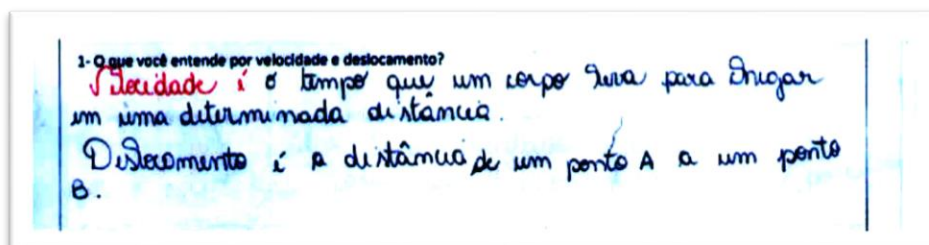 1- O que você entende por velocidade e deslocamento?
Velocidade é o tempo que um corpo leva para chegar
em uma determinada distância.
Deslocamento é a distância de um ponto A a um ponto
B.